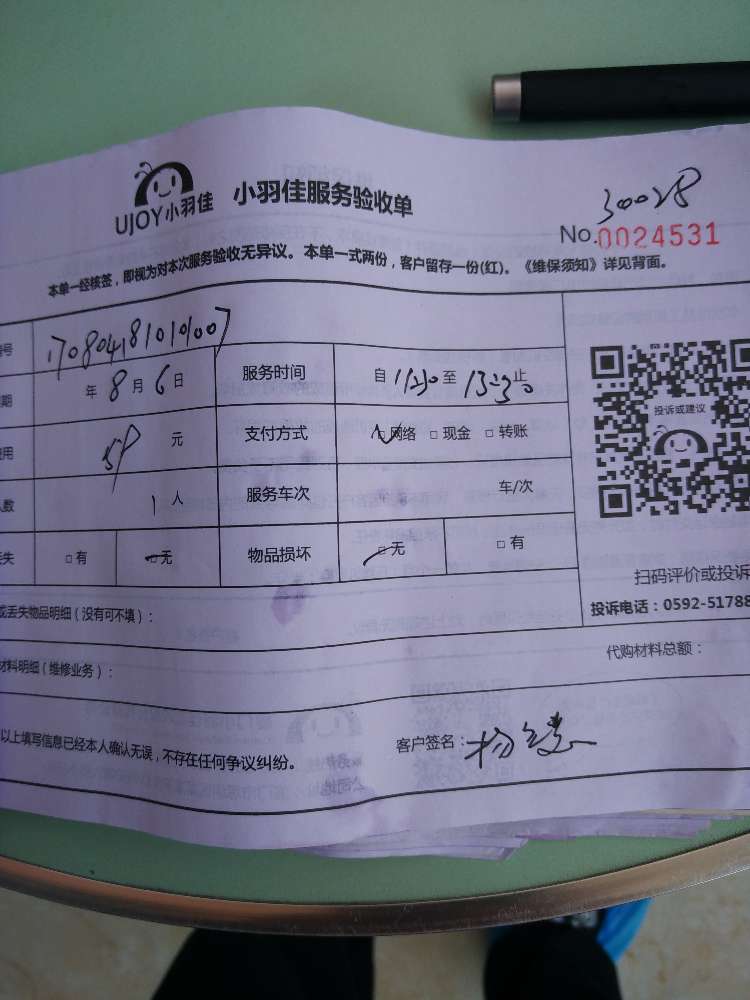 UJOY小羽佳 小羽佳服务验收单
30028
No.0024531
本单一经核签，即视为对本次服务验收无异议。本单一式两份，客户留存一份(红)。《维保须知》详见背面。
号
期 年 8 月 6 日 服务时间 自 11:30 至 13:30 止
用 59 元 支付方式 □网络 □现金 □转账
人数 1 人 服务车次 车/次
丢失 □有 □无 物品损坏 □无 □有
投诉或建议
扫码评价或投诉
投诉电话：0592-51788
或丢失物品明细（没有可不填）：
材料明细（维修业务）： 代购材料总额：
以上填写信息已经本人确认无误，不存在任何争议纠纷。 客户签名：杨